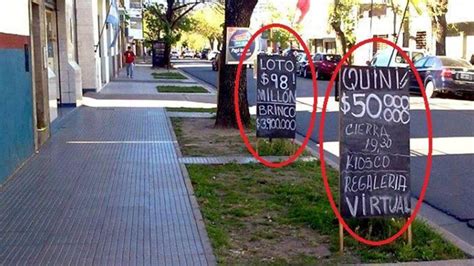 LOTO
$98
MILLÓN
BRINCO
$3.900.000
QUINI
$50.000.000
CIERRA
19,30
KIOSCO
REGALERIA
VIRTUAL